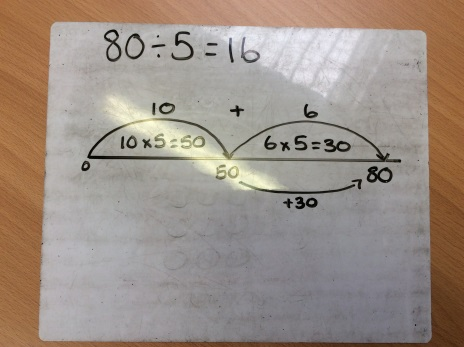 80÷5=16
10 + 6
10×5=50 6×5=30
0 50 80
+30